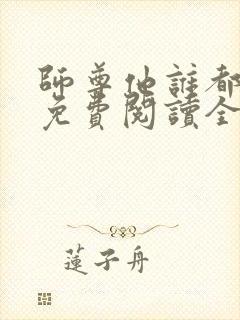 師尊他誰都
免費閱讀全
蓮子舟